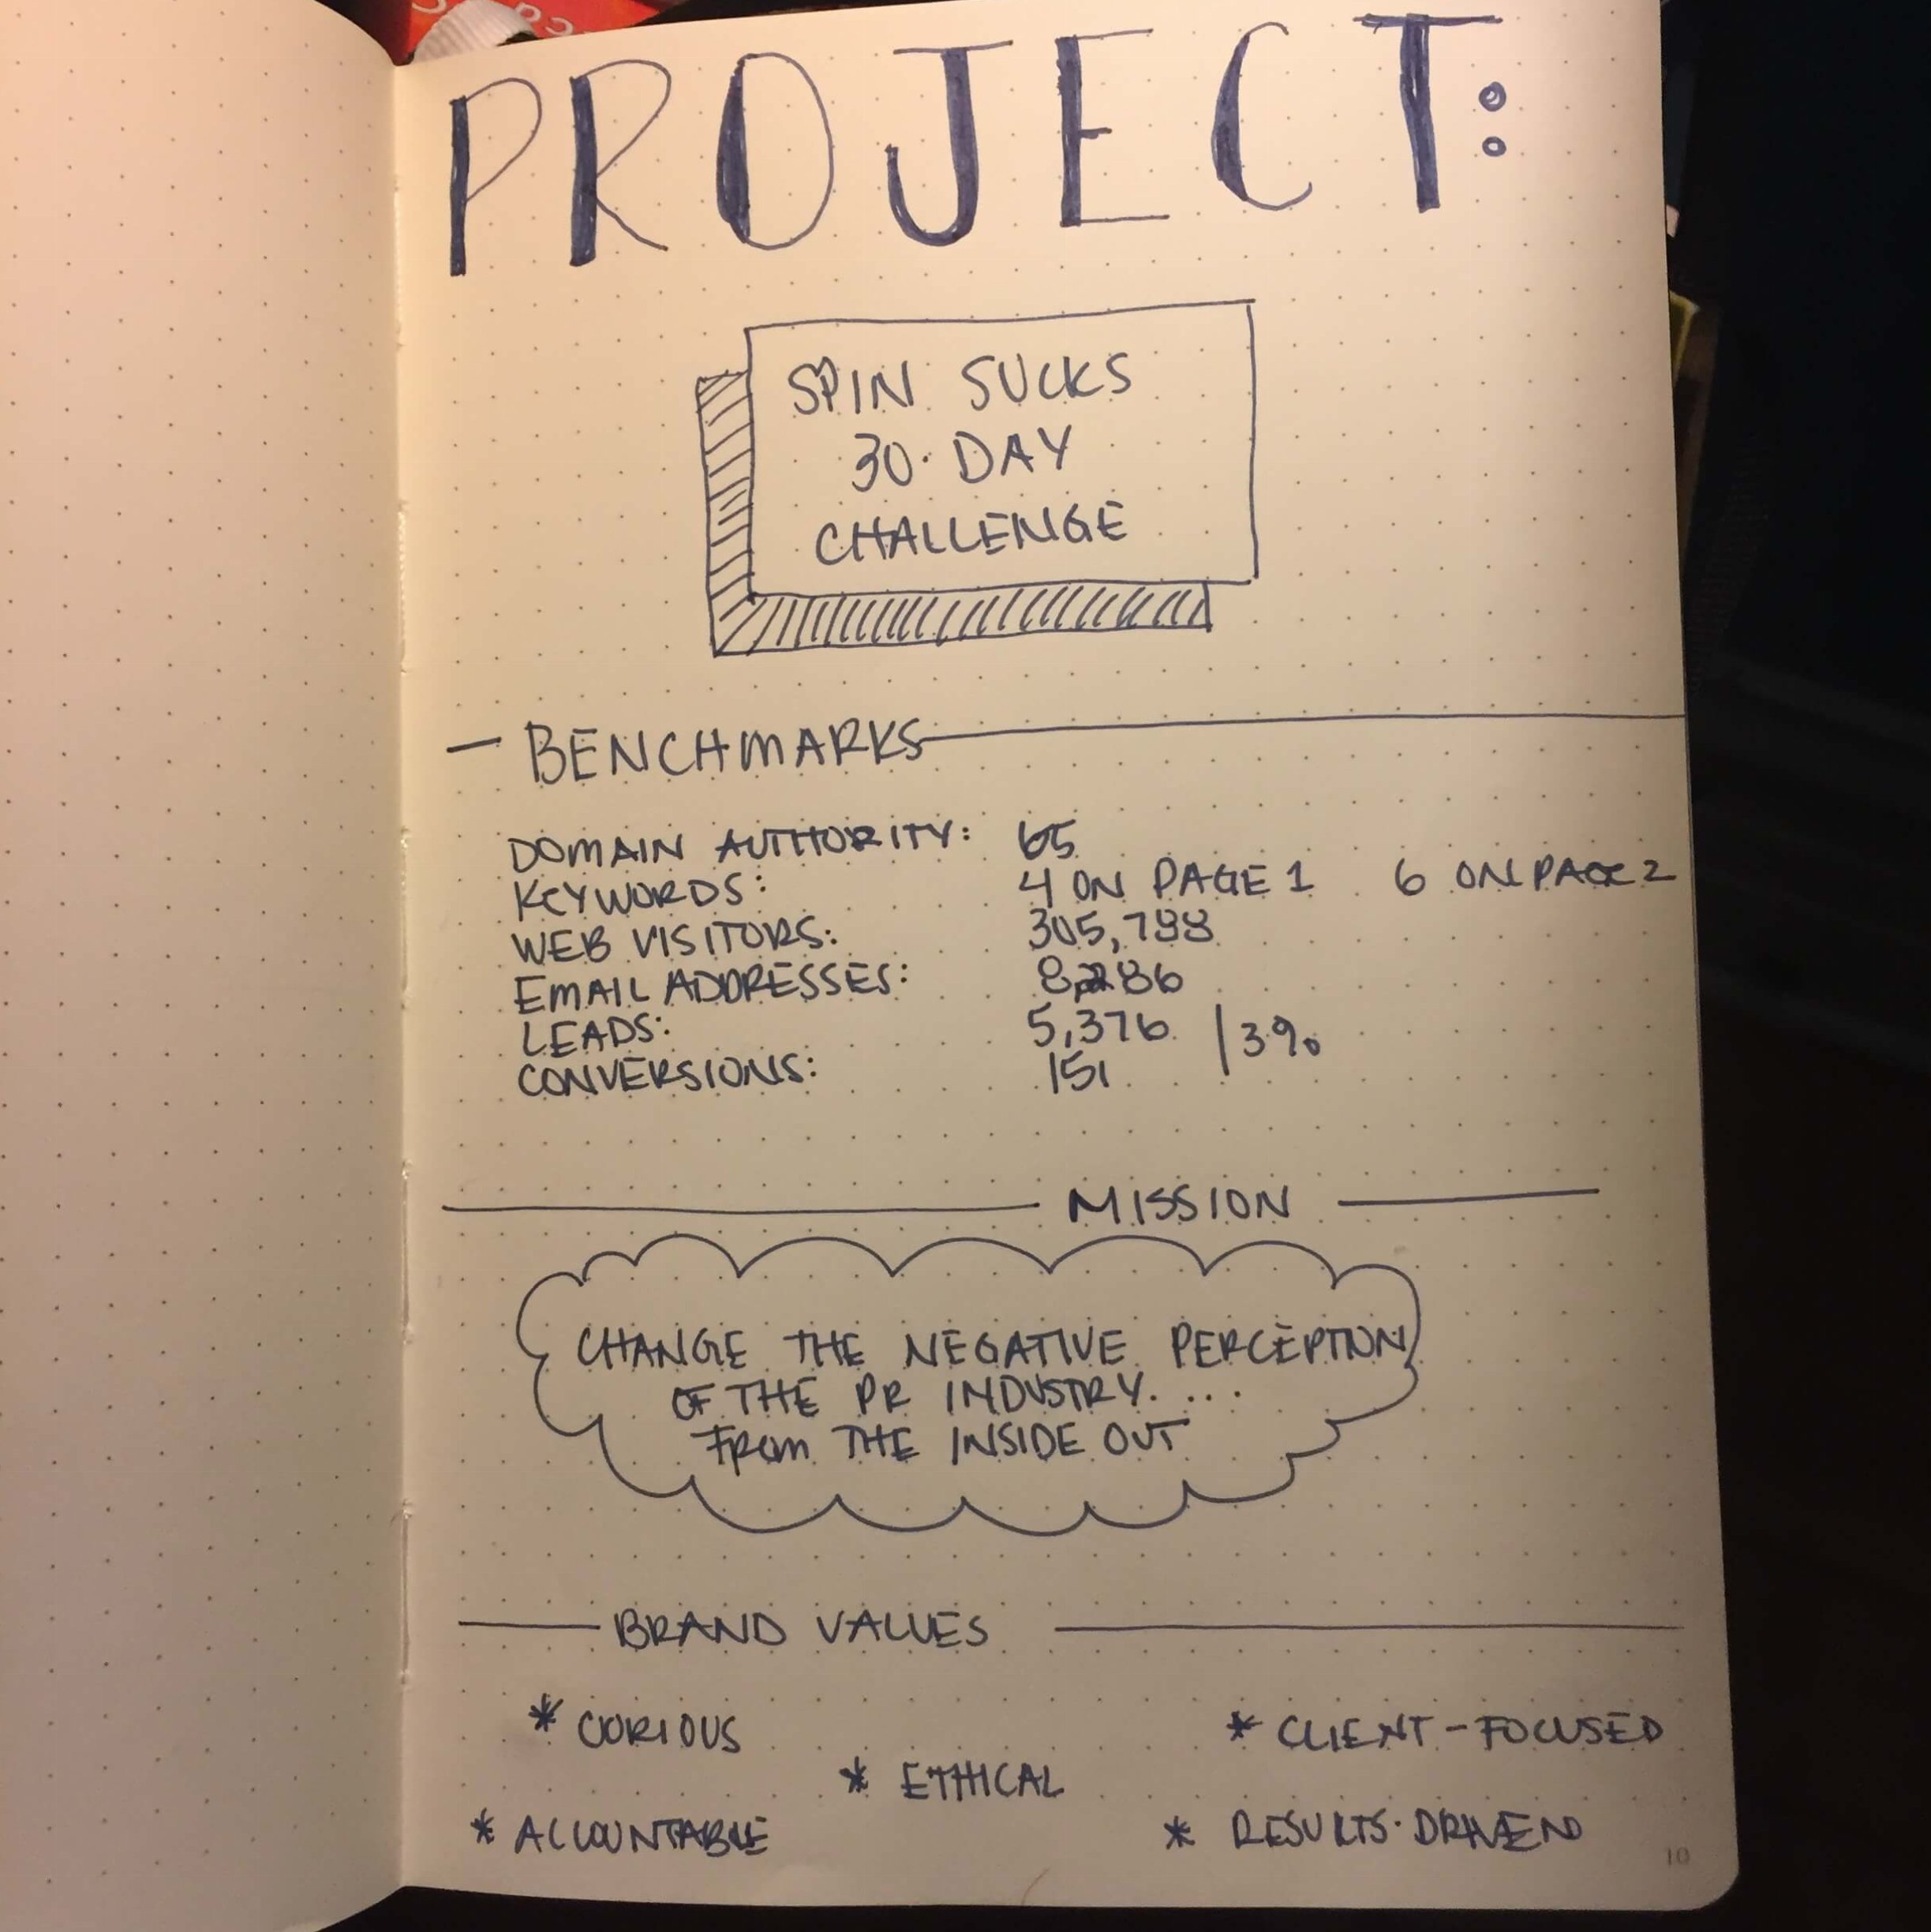 PROJECT:
SPIN SUCKS
30·DAY
CHALLENGE
BENCHMARKS
DOMAIN AUTHORITY: 65
KEYWORDS: 4 ON PAGE 1 6 ON PAGE 2
WEB VISITORS:
EMAIL ADDRESSES:
LEADS: 5,376 | 3%
CONVERSIONS: 151
MISSION
CHANGE THE NEGATIVE PERCEPTION
OF THE PR INDUSTRY....
FROM THE INSIDE OUT
BRAND VALUES
* CURIOUS * CLIENT-FOCUSED
* ETHICAL
* ACCOUNTABLE * RESULTS·DRIVEN
10